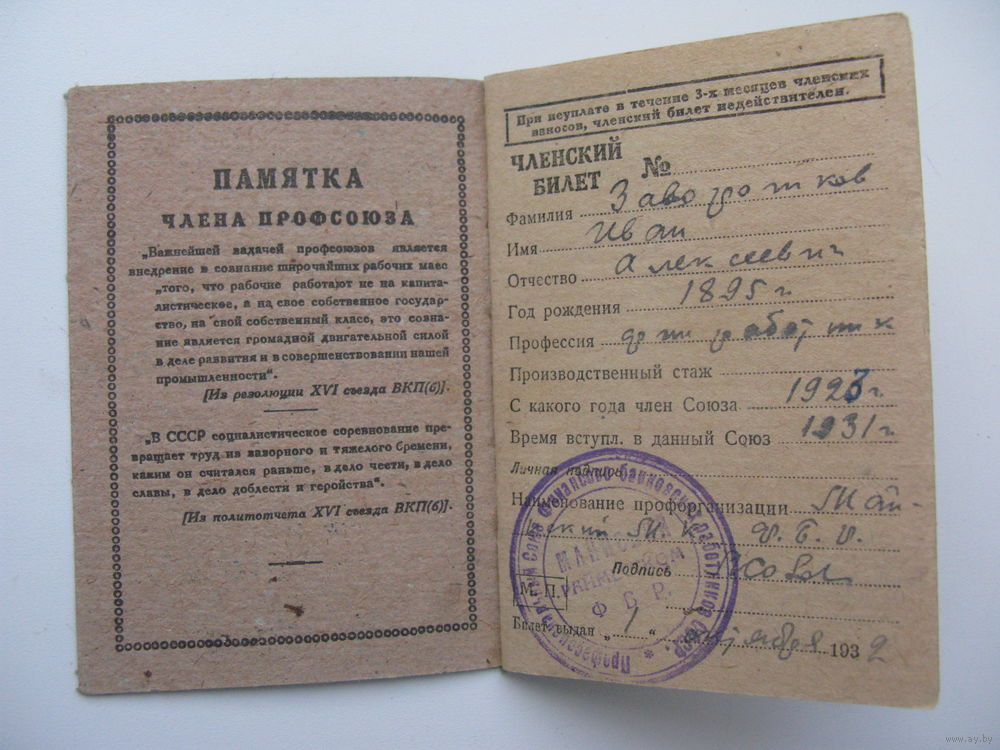 ПАМЯТКА
ЧЛЕНА ПРОФСОЮЗА
„Важнейшей задачей профсоюзов является
внедрение в сознание широчайших рабочих масс
„того, что рабочие работают не на капита-
листическое, а на свое собственное государ-
ство, на свой собственный класс, это созна-
ние является громадной двигательной силой
в деле развития и в совершенствовании нашей
промышленности“.
[Из резолюции XVI съезда ВКП(б)].
„В СССР социалистическое соревнование пре-
вращает труд из зазорного и тяжелого бремени,
каким он считался раньше, в дело чести, в дело
славы, в дело доблести и геройства“.
[Из политотчета XVI съезда ВКП(б)].
При неуплате в течение 3-х месяцев членских
взносов, членский билет недействителен.
ЧЛЕНСКИЙ
БИЛЕТ №
Фамилия
Имя Иван
Отчество Алексеевич
Год рождения 1895 г
Профессия
Производственный стаж
С какого года член Союза 1923 г.
Время вступл. в данный Союз 1931 г
Личная подпись
Наименование профорганизации
Подпись
М. П.
Билет выдан „1“ 1932
Профессиональный Союз финансово банковских работников СССР
Ф Б Р.
www.ay.by